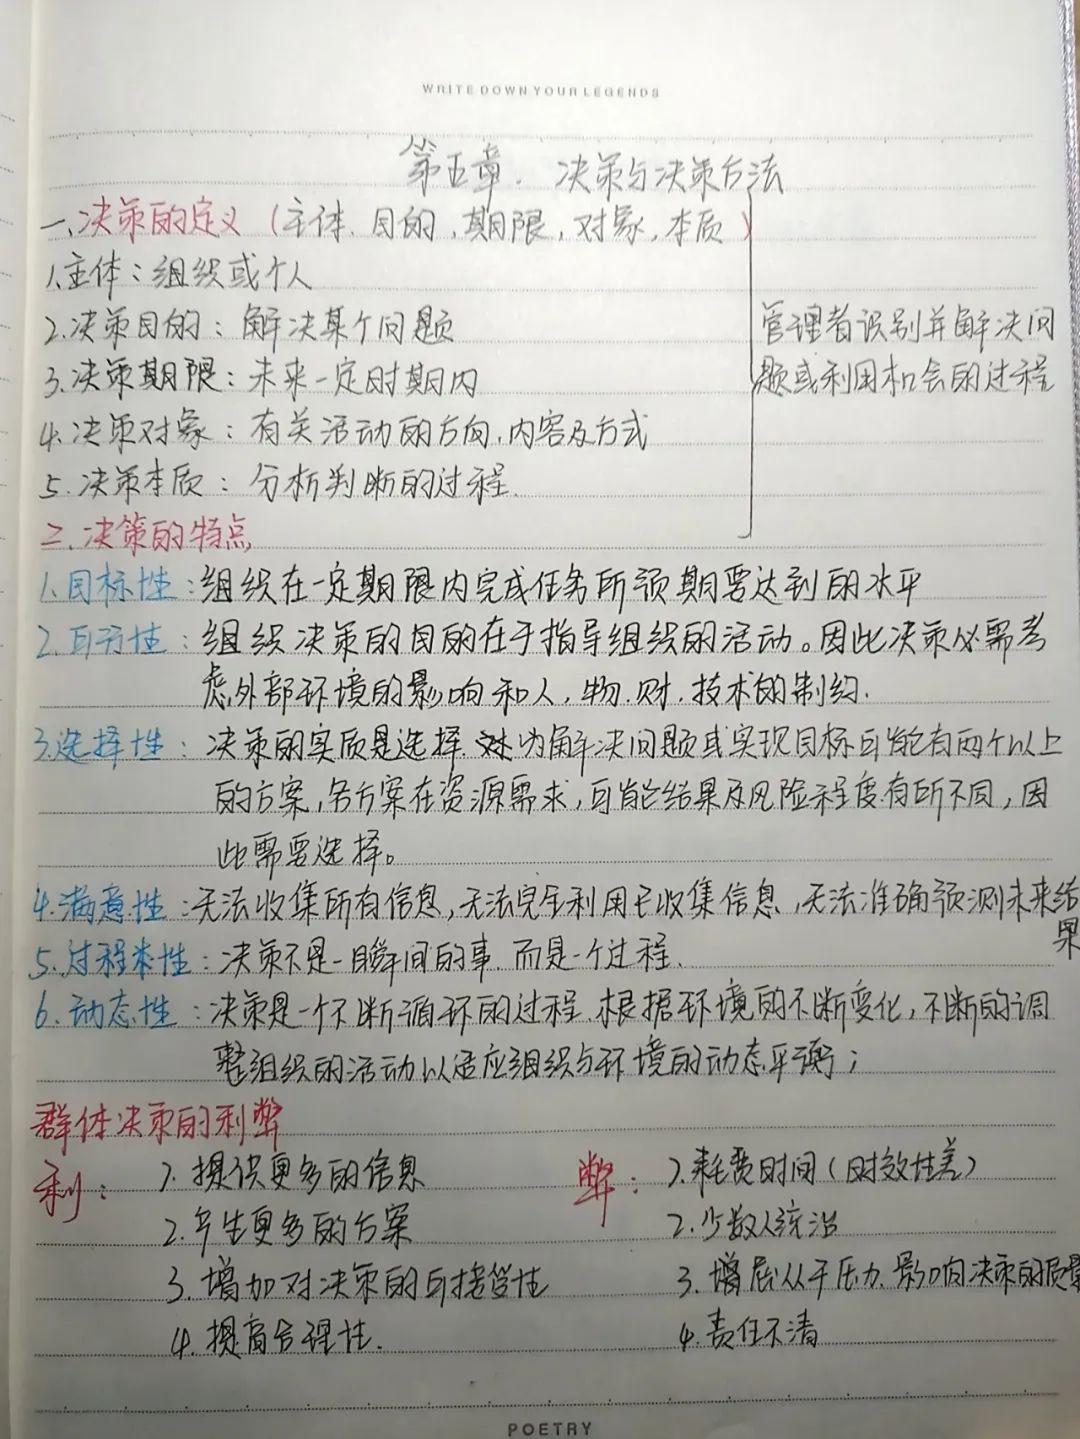 WRITE DOWN YOUR LEGENDS
第五章. 决策与决策方法
一、决策的定义（主体、目的，期限，对象，本质）
1.主体：组织或个人
2.决策目的：解决某个问题
管理者识别并解决问
3.决策期限：未来一定时期内
题或利用机会的过程
4.决策对象：有关活动的方向、内容及方式
5.决策本质：分析判断的过程.
二、决策的特点
1.目标性：组织在一定期限内完成任务所预期要达到的水平
2.可行性：组织决策的目的在于指导组织的活动。因此决策必需考
虑外部环境的影响和人，物.财.技术的制约.
3.选择性：决策的实质是选择.为解决问题或实现目标可能有两个以上
的方案，各方案在资源需求，可能结果及风险程度有所不同，因
此需要选择。
4.满意性：无法收集所有信息，无法完全利用已收集信息，无法准确预测未来结
果
5.过程性：决策不是一瞬间的事.而是一个过程.
6.动态性：决策是一个不断循环的过程.根据环境的不断变化，不断的调
整组织的活动以适应组织与环境的动态平衡；
群体决策的利弊
利： 1.提供更多的信息
弊： 1.耗费时间（时效性差）
2.产生更多的方案
2.少数人统治
3.增加对决策的可接受性
3.屈从于压力.影响决策的质量
4.提高合理性.
4.责任不清
POETRY